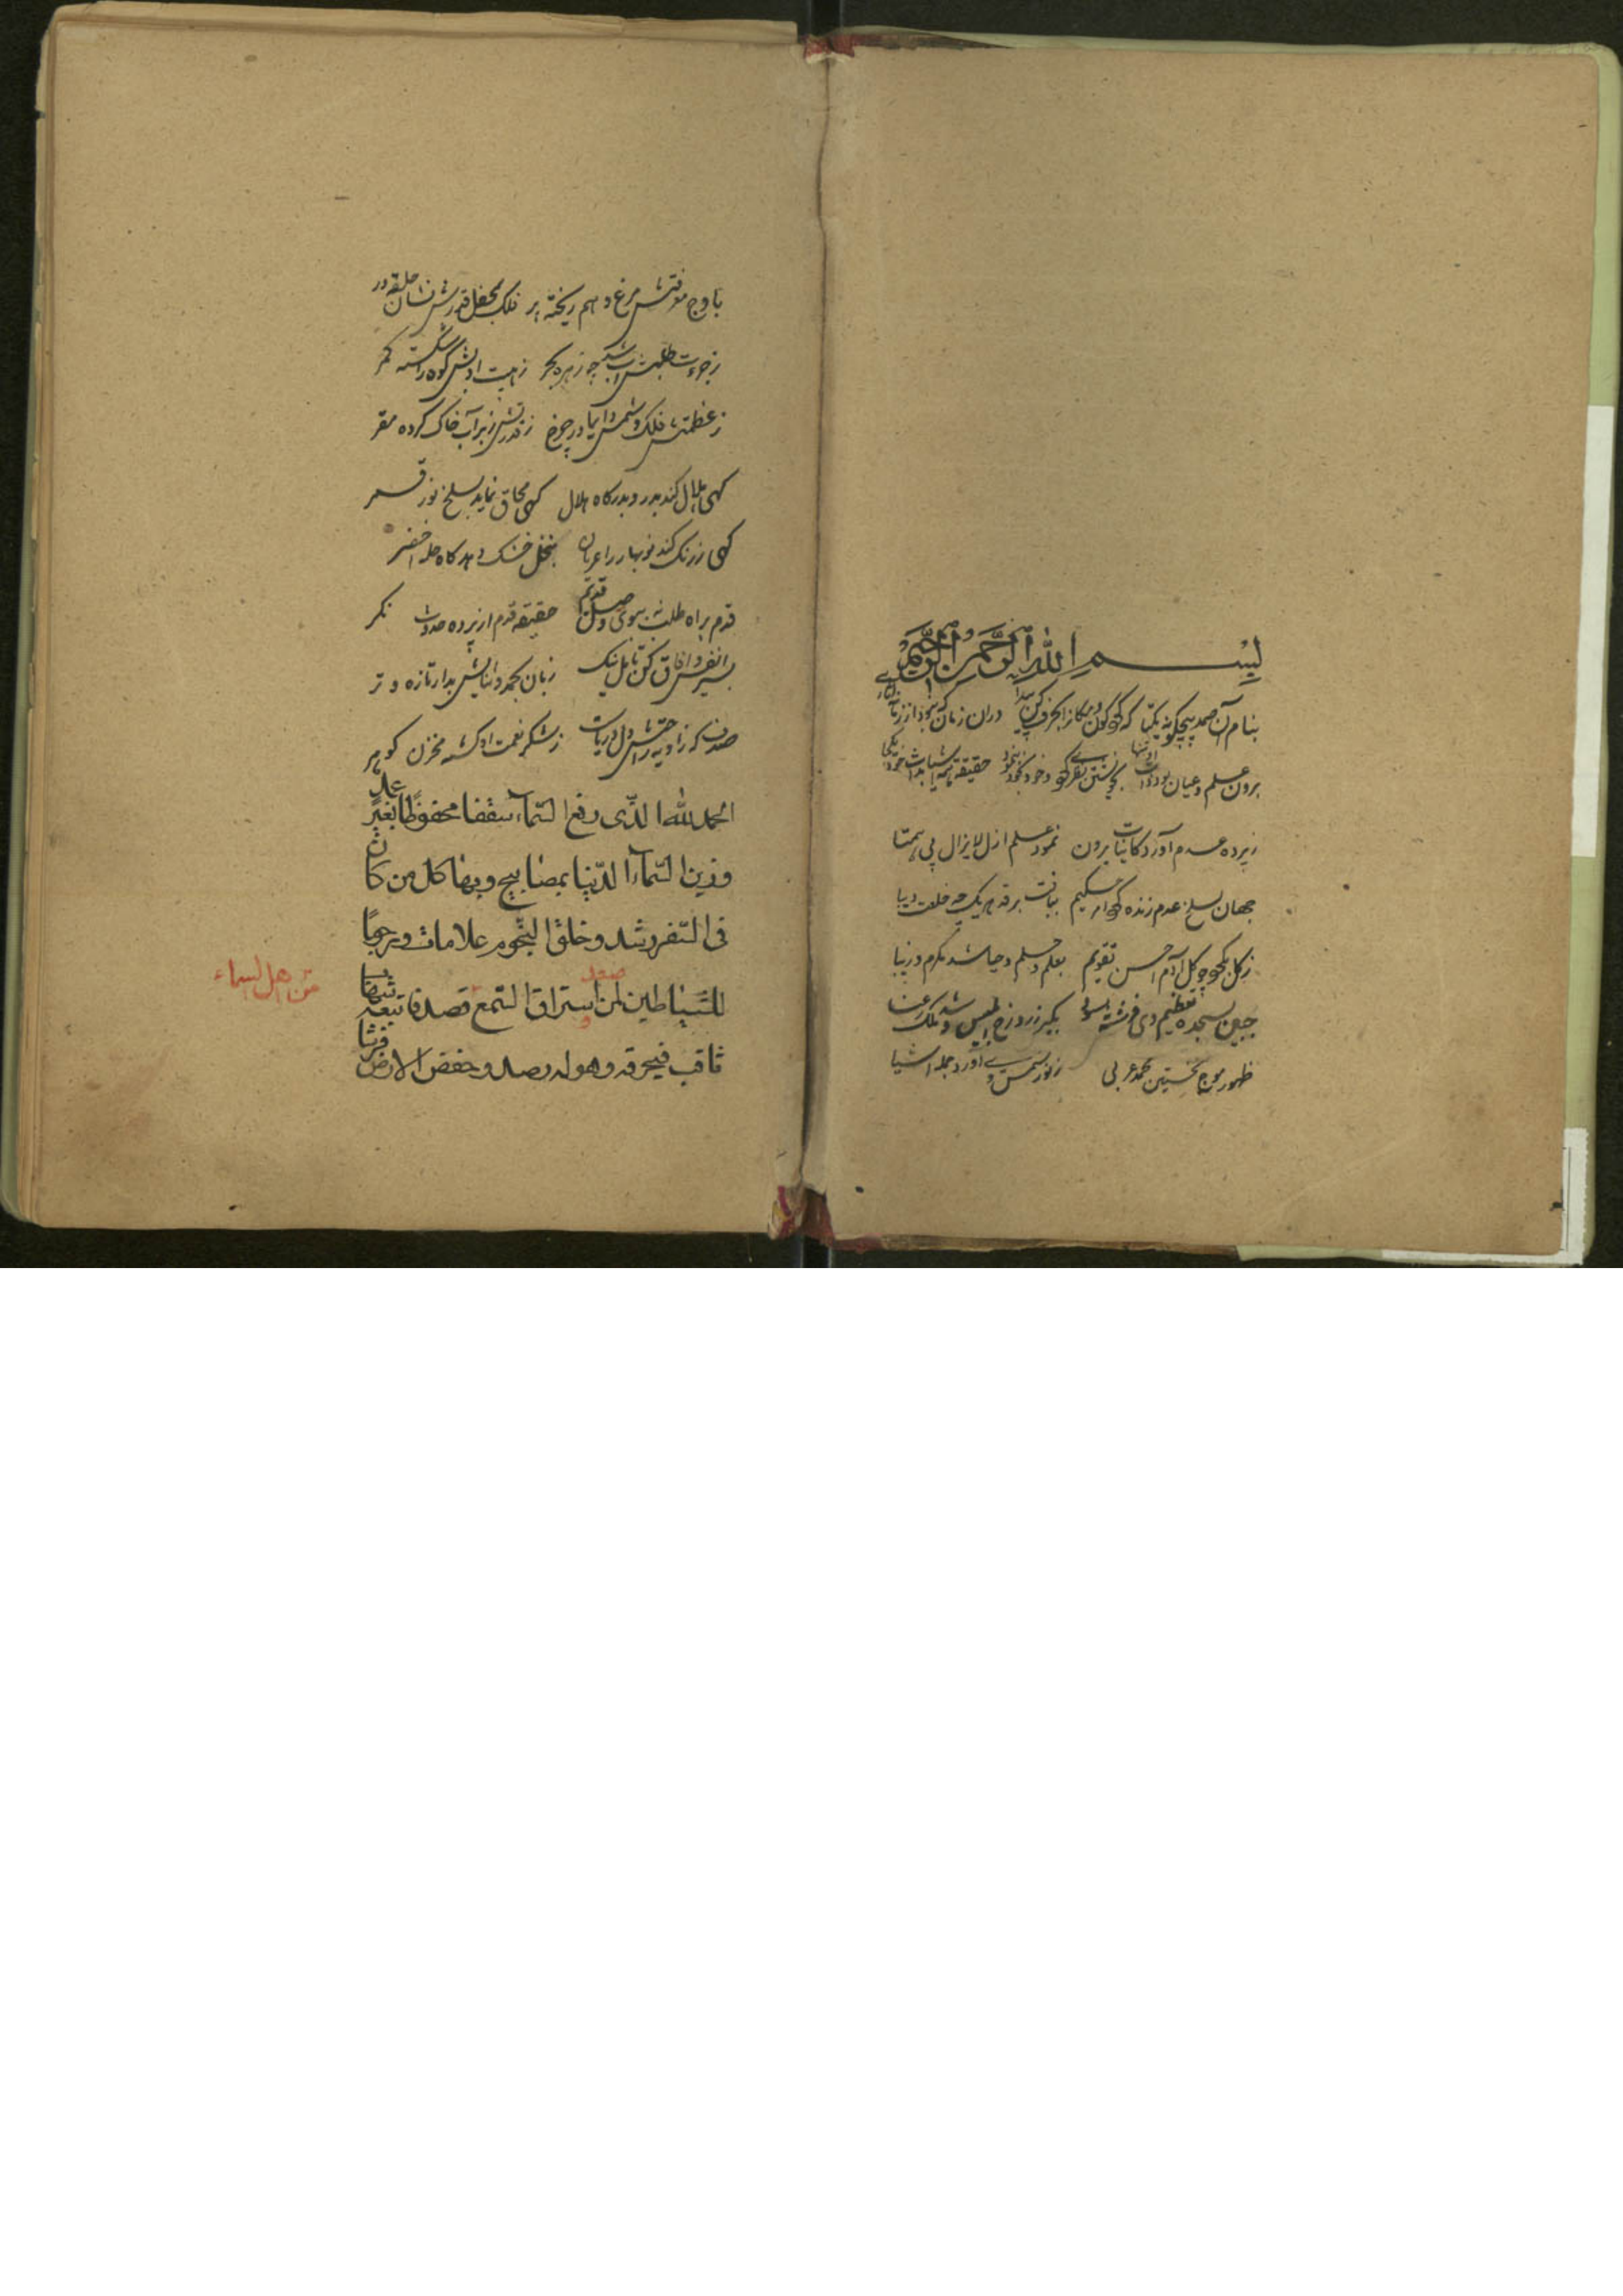 بِسْمِ اللهِ الرَّحْمنِ الرَّحِيمِ
بنام آن صمد بیچگونه یکتا که کون و مکان را بحرف کن پیدا دران زمان که نبود از زمان
برون ز علم و عیان بود ذات او تنها بخویشتن نظری کرد و خود بخود بنمود حقیقة همه اشیا بذات خود یکجا
ز پرده عدم آورد کاینات برون نمود علم ازل لایزال بی همتا
جهان بسلخ عدم زنده کرد حکیم بیافت بر قد هر یک چه خلعت دیبا
ز کل نکو چو کل آدم احسن تقویم بعلم و حلم و حیا شد مکرم و زیبا
جبین بسجده تعظیم وی فرشته بسود بکبر زد ابلیس
ظهور موج نخستین محمد عربی ز نور آورد جمله اشیا
باوج معرفتش مرغ وهم ریخته پر فلک بمحفل قدرش نشان حلقه در
ز جرءت طلبش آب شد چه زهره بحر ز هیبت ادبش کوه را شکسته کمر
ز عظمتش فلک و شمس دایما در چرخ ز قدرتش ز بر آب خاک کرده مقر
کهی هلال کند بدر و بدر کاه هلال کهی محاق نماید بسلخ نور قمر
کهی ز رنک کند نوبهار را عریان بنخل خشک دهد کاه حله اخضر
قدم براه طلب نه بسوی وصل قدیم حقیقة قدم از پرده حدوث نکر
بسیر انفس و افاق کن تامل نیک زبان بحمد و ثنایش بدار تازه و تر
صدف که زاویه اش دل دریاست ز شکر نعمت او کشته مخزن کوهر
الحمد لله الذی رفع السّمآء سقفا محفوظًا بغیر عماد
و زین السّمآء الدّنیا بمصابیح و بها کل من کان
فی السّفر رشد و خلق النجوم علامات و رجومًا
للشیاطین لمن استراق السّمع قصد فاتبعه شهاب
ثاقب فیحرقه و هو له رصد و خفض الارض فرشا
صعد
من اهل السماء